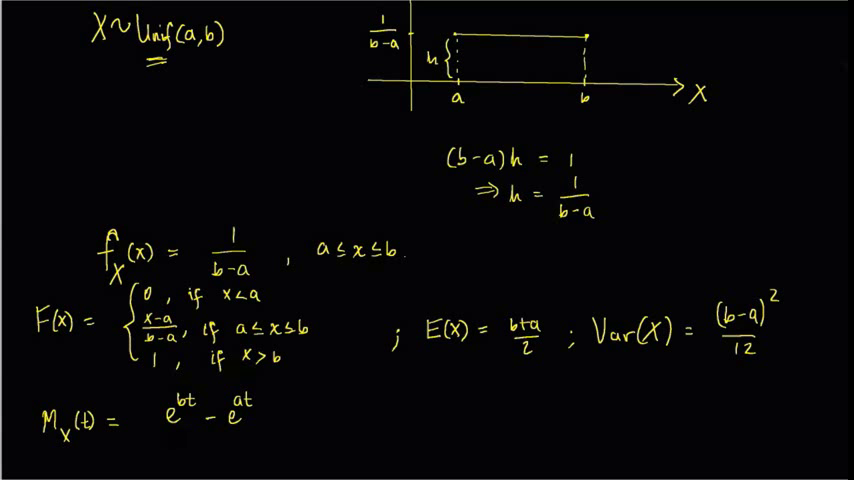 X ~ Unif(a,b)
1/(b-a)
h
a b X
(b-a)h = 1
⇒ h = 1/(b-a)
f_X(x) = 1/(b-a) , a ≤ x ≤ b.
F(x) = { 0 , if x < a
(x-a)/(b-a) , if a ≤ x ≤ b
1 , if x > b
; E(X) = (b+a)/2 ; Var(X) = (b-a)^2/12
M_X(t) = e^{bt} - e^{at}